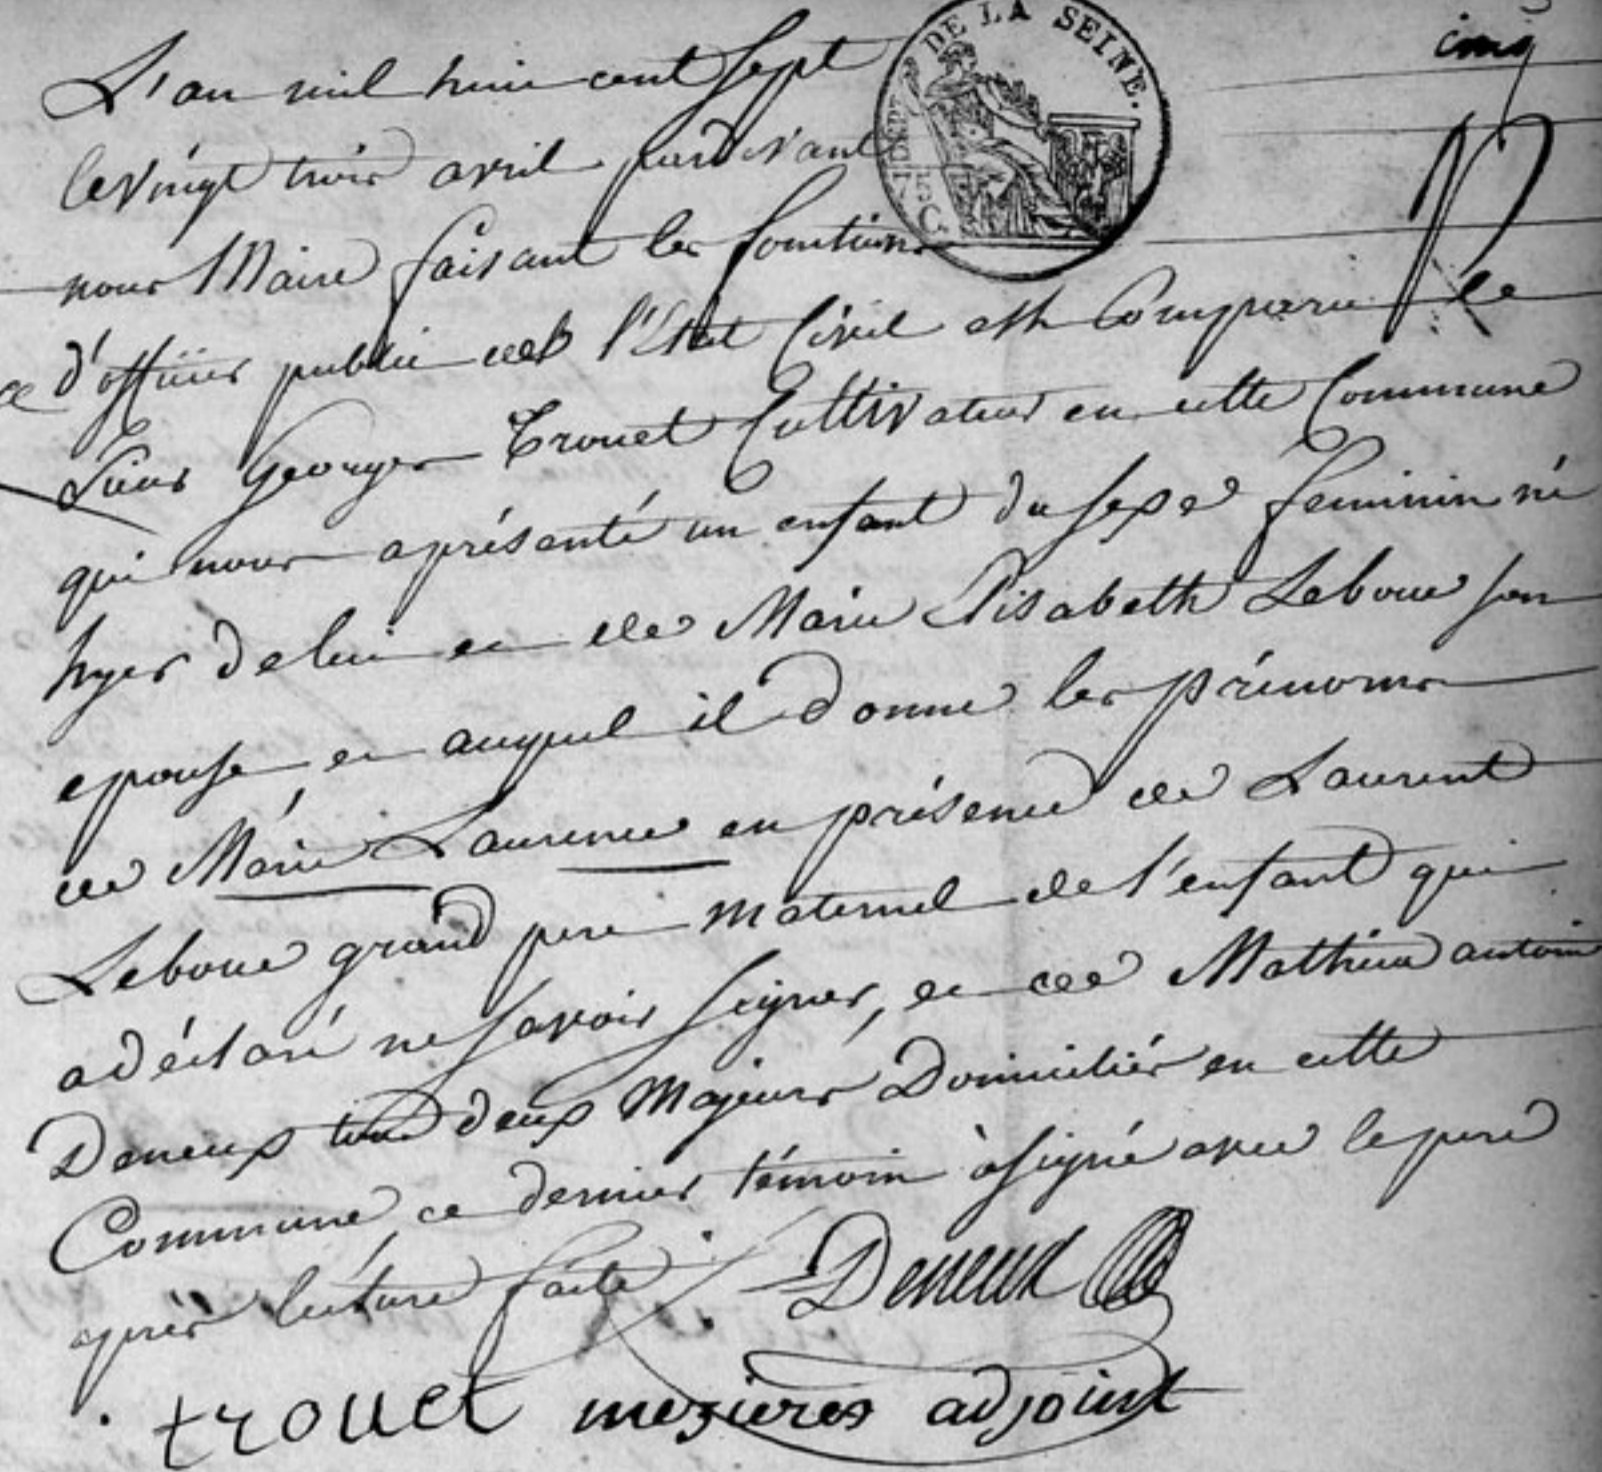 cinq
DEPT DE LA SEINE.
L'an mil huit cent sept
le vingt trois avril pardevant
nous Maire faisant les fonctions
d'officier public de l'Etat Civil est Comparu le
Sieur Georges Trouet Cultivateur en cette Commune
qui nous a présenté un enfant du sexe feminin né
hyer de lui et de Marie Elisabeth Leboue son
epouse, et auquel il donne les prénoms
de Marie Laurence en présence de Laurent
Leboue grand pere maternel de l'enfant qui
a déclaré ne savoir signer, et de Mathieu antoine
Deneux tous deux Majeurs Domiciliés en cette
Commune, ce dernier témoin à signé avec le pere
après lecture faite
Deneux
trouet mezieres adjoint